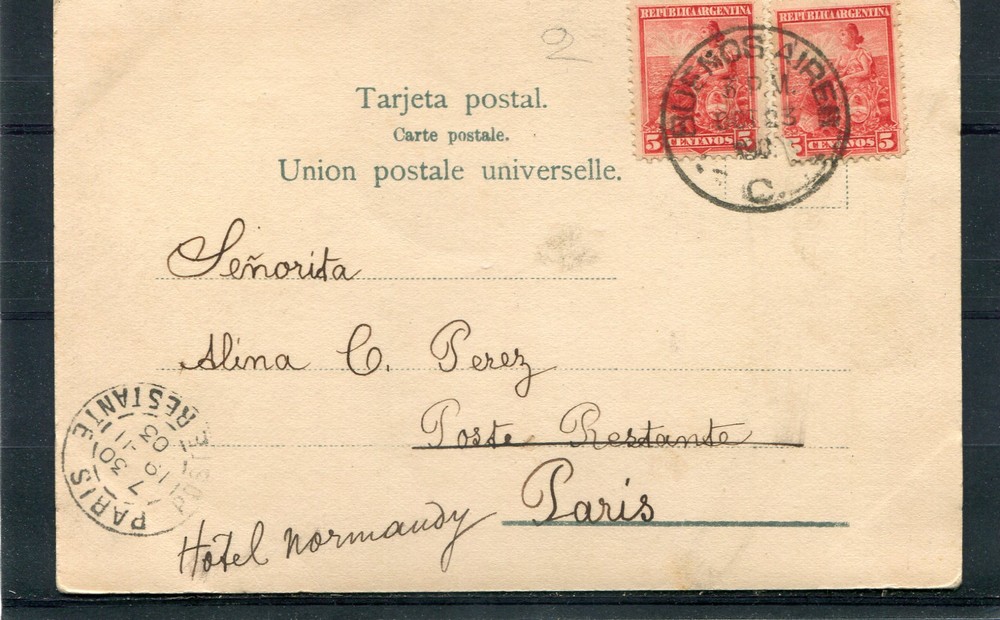 2
REPÚBLICA ARGENTINA REPÚBLICA ARGENTINA
5 CENTAVOS 5 5 CENTAVOS 5
BUENOS AIRES
23
C.
Tarjeta postal.
Carte postale.
Union postale universelle.
Señorita
Alina C. Perez
Poste Restante
Paris
Hôtel Normandy
PARIS POSTE RESTANTE
7 30
19 11
03